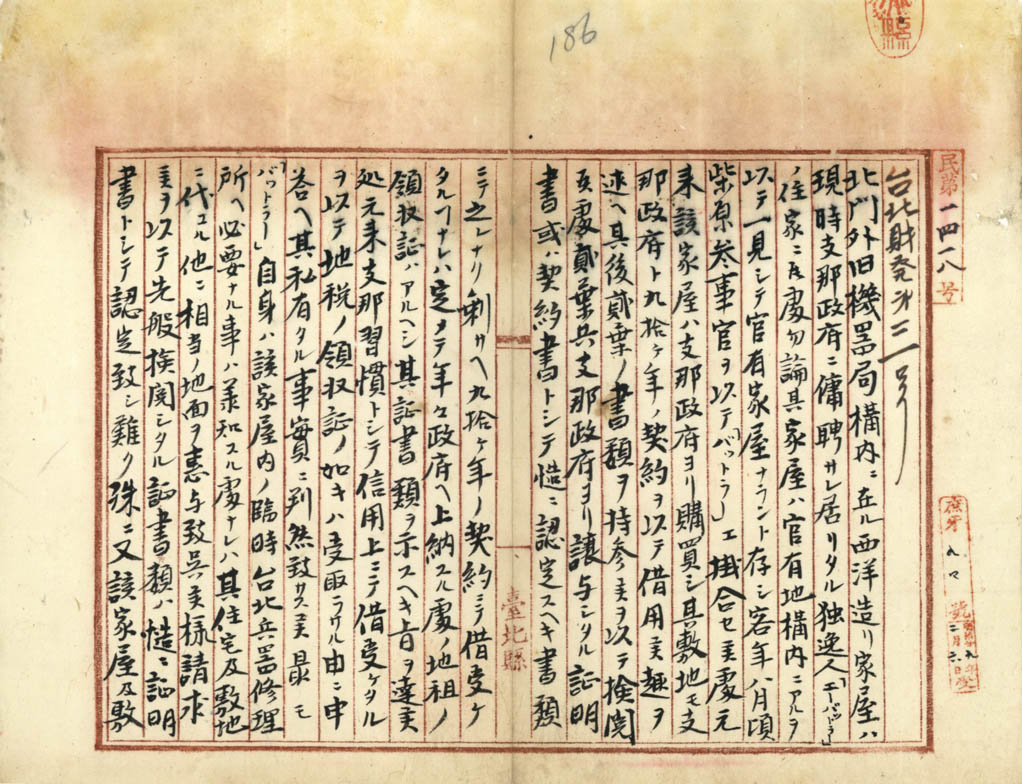 186
民第一四一八号
台北財発第二一号
北門外旧機器局構内ニ在ル西洋造リ家屋ハ
現時支那政府ニ傭聘サレ居リタル独逸人「エーバットラー」
ノ住家ニ有之處勿論其家屋ハ官有地構内ニアルヲ
以テ一見シテ官有家屋ナラント存シ客年八月頃
柴原参事官ヲ以テ「バットラー」エ掛合セ候處元
来該家屋ハ支那政府ヨリ購買シ其敷地モ支
那政府ト九拾ヶ年ノ契約ヲ以テ借用候趣ヲ
述ヘ其後貳葉ノ書類ヲ持参候ヲ以テ検閲
候處貳葉共支那政府ヨリ譲与シタル証明
書或ハ契約書トシテ慥ニ認定スヘキ書類
ニテ之レナリ剰サヘ九拾ヶ年ノ契約ニテ借受ケ
タルコナレハ定メテ年々政府ヘ上納スル處ノ地租ノ
領収証ハアルヘシ其証書類ヲ示スヘキ旨ヲ達候
処元来支那習慣トシテ信用上ニテ借受ケタル
ヲ以テ地税ノ領収証ノ如キハ受取ラサル由ニ申
答ヘ其私有タル事実ニ判然致サス候最モ
「バットラー」自身ハ該家屋内ノ臨時台北兵器修理
所ヘ必要ナル事ハ承知スル處ナレハ其住宅及敷地
ニ代ユル他ニ相当ノ地面ヲ恵与致呉候様請求
候ヲ以テ先般検閲シタル証書類ハ慥ニ証明
書トシテ認定致シ難ク殊ニ又該家屋及敷
臺北縣